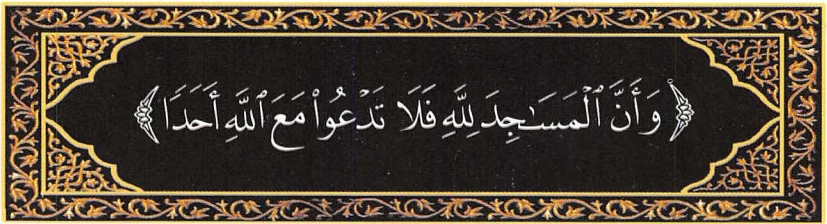 ﴿ وَأَنَّ ٱلْمَسَـٰجِدَ لِلَّهِ فَلَا تَدْعُوا۟ مَعَ ٱللَّهِ أَحَدًا ﴾